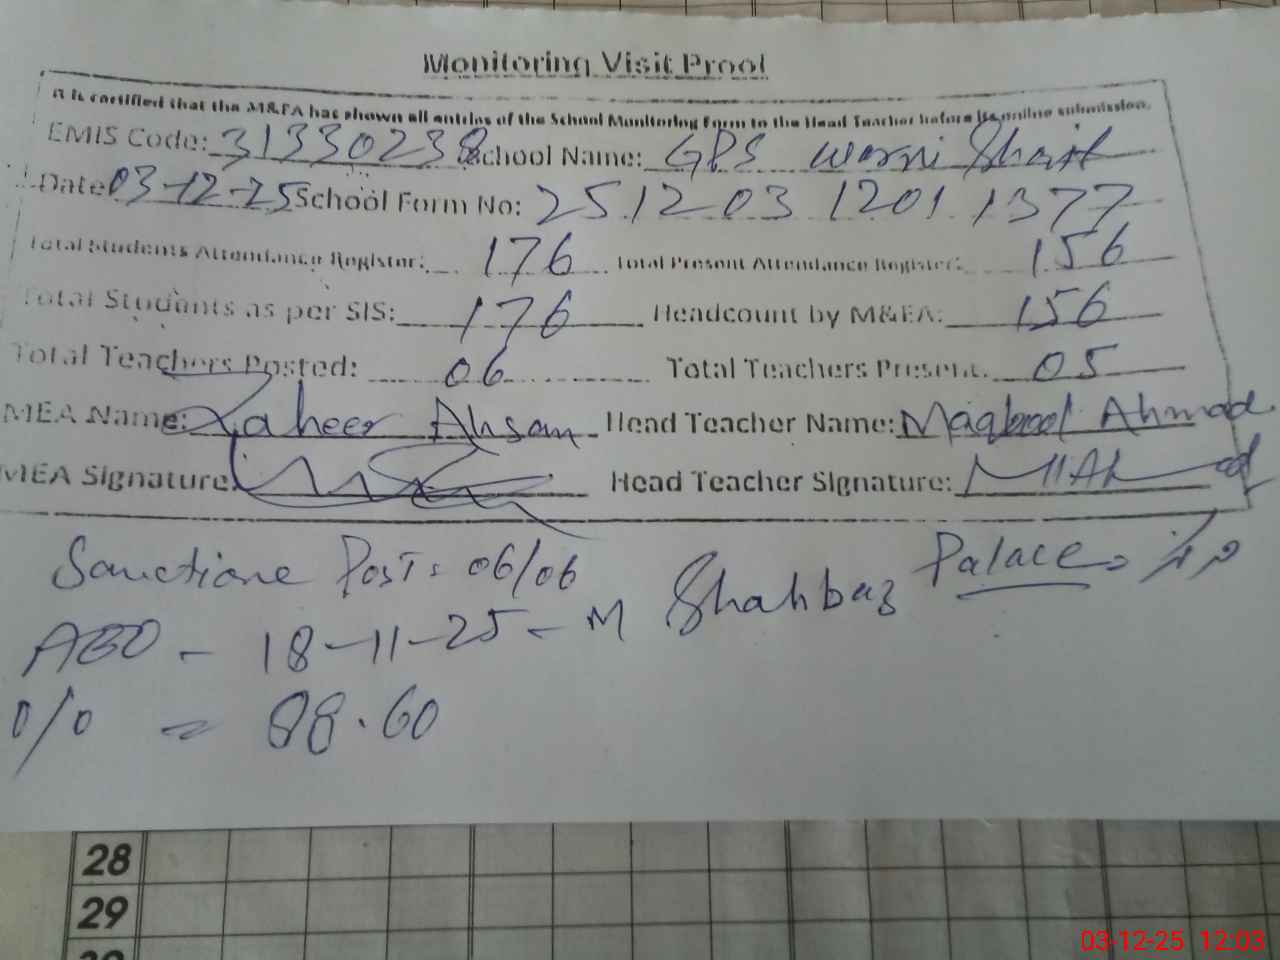 Monitoring Visit Proof
It is certified that the M&EA has shown all entries of the School Monitoring Form to the Head Teacher before its online submission.
EMIS Code: 31330238 School Name: GPS Warni Sharif
Date 03-12-25 School Form No: 251203 1201 1377
Total Students Attendance Register: 176 Total Present Attendance Register: 156
Total Students as per SIS: 176 Headcount by M&EA: 156
Total Teachers Posted: 06 Total Teachers Present. 05
MEA Name: Zaheer Ahsan Head Teacher Name: Maqbool Ahmad
MEA Signature: Head Teacher Signature:
Sanctione Post: 06/06
AEO - 18-11-25 - M Shahbaz Palace
% = 88.60
28
29
30
03-12-25 12:03